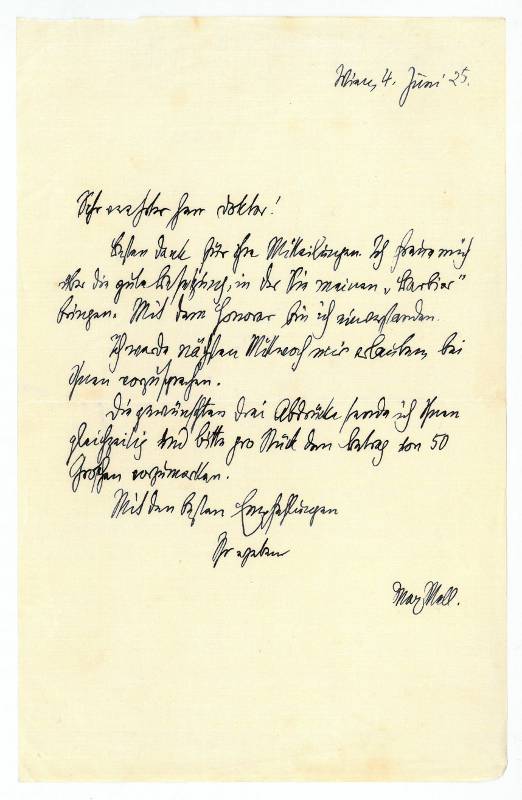 Wien, 4. Juni 25.
Sehr verehrter Herr Doktor!
Besten Dank für Ihre Mitteilungen. Ich freue mich
über die gute Besetzung, in der Sie meinen „Barbier"
bringen. Mit dem Honorar bin ich einverstanden.
Ich werde nächsten Mittwoch mir erlauben, bei
Ihnen vorzusprechen.
Die gewünschten drei Abdrücke sende ich Ihnen
gleichzeitig und bitte pro Stück den Betrag von 50
Groschen vorzumerken.
Mit den besten Empfehlungen
Ihr ergebener
Max Mell.